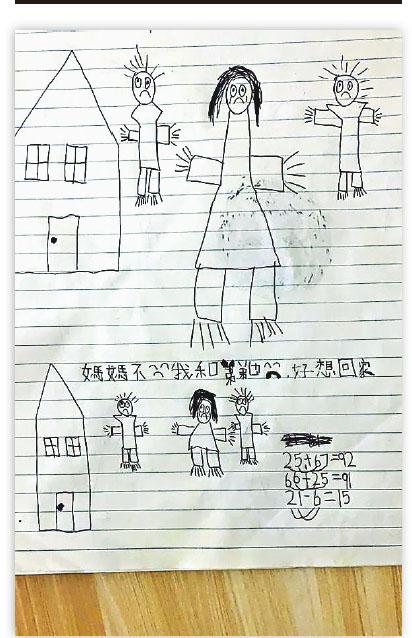 媽媽不 我和弟弟也 ,好想回家
25+67=92
66+25=91
21-6=15